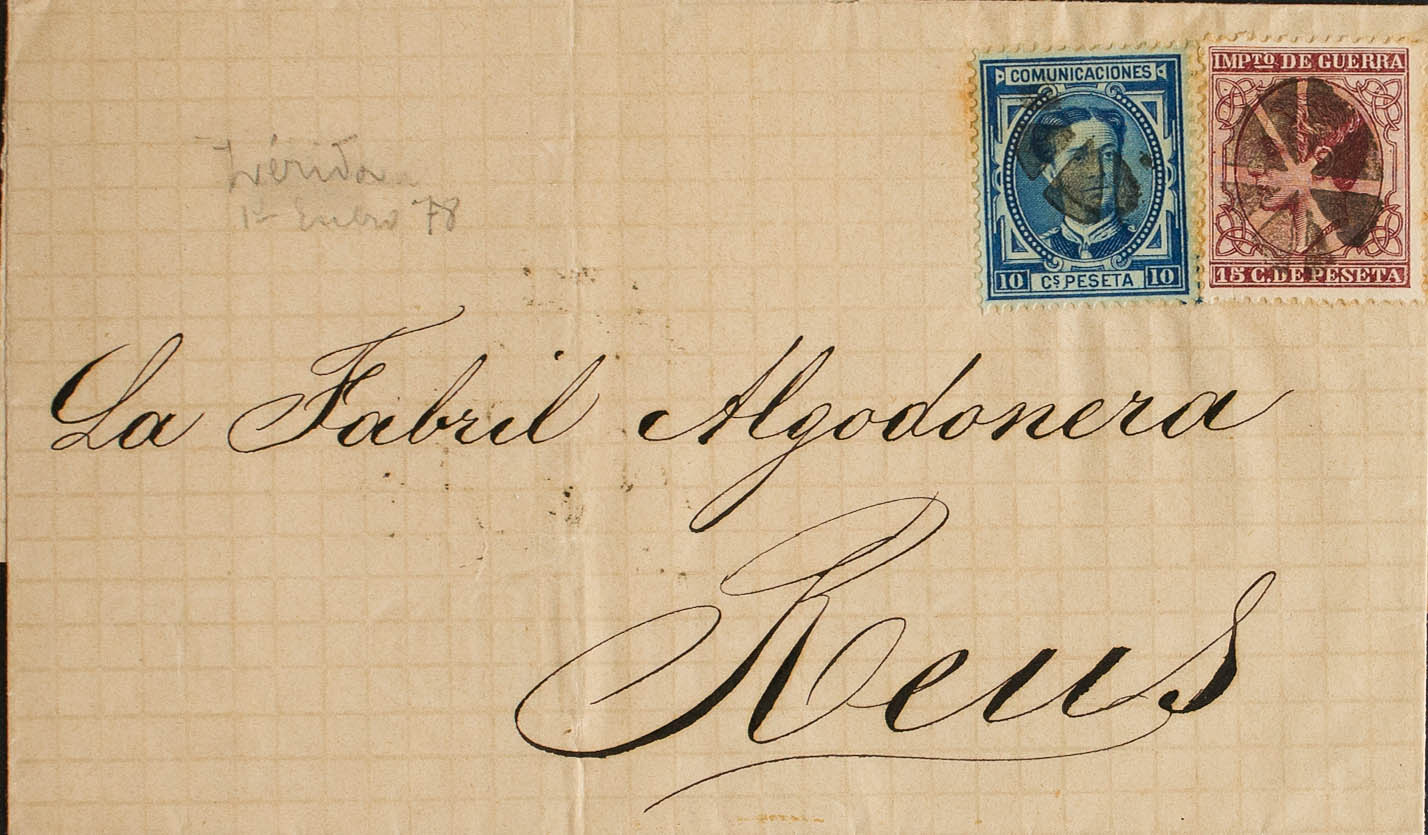 COMUNICACIONES
10 Cs PESETA 10
IMPTO DE GUERRA
15 C. DE PESETA
Lérida
1º enero 78
La Fabril Algodonera
Reus